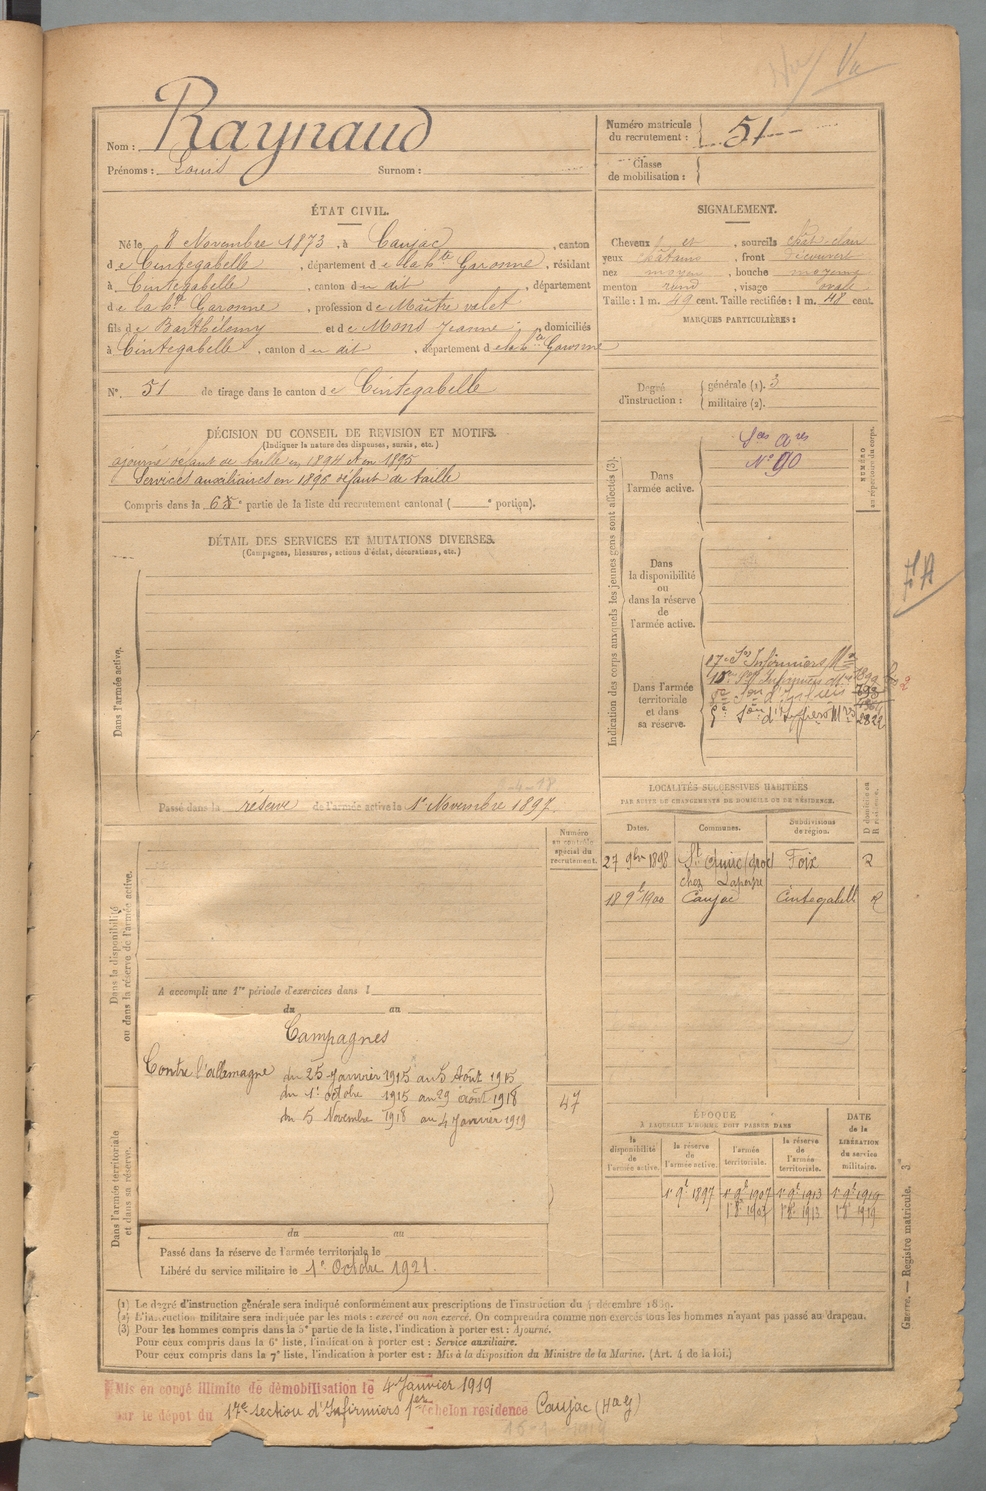 Nom : Raynaud
Prénoms : Louis Surnom :
Numéro matricule du recrutement : 51
Classe de mobilisation :
ÉTAT CIVIL.
Né le 8 Novembre 1873, à Caujac, canton
de Cintegabelle, département de la hte Garonne, résidant
à Cintegabelle, canton du dit, département
de la hte Garonne, profession de Maître valet
fils de Barthélemy et de Mons Jeanne, domiciliés
à Cintegabelle, canton du dit, département de la hte Garonne
N°. 51 de tirage dans le canton de Cintegabelle
SIGNALEMENT.
Cheveux et, sourcils chat clair
yeux châtains, front découvert
nez moyen, bouche moyenne
menton rond, visage ovale
Taille : 1 m. 49 cent. Taille rectifiée : 1 m. 48 cent.
MARQUES PARTICULIÈRES :
Degré d'instruction : générale (1). 3
militaire (2).
DÉCISION DU CONSEIL DE REVISION ET MOTIFS.
(Indiquer la nature des dispenses, sursis, etc.)
ajourné défaut de taille en 1894 et en 1895
Services auxiliaires en 1896 défaut de taille
Compris dans la 6e partie de la liste du recrutement cantonal ( e portion).
DÉTAIL DES SERVICES ET MUTATIONS DIVERSES.
(Campagnes, blessures, actions d'éclat, décorations, etc.)
Dans l'armée active.
Passé dans la réserve de l'armée active le 1er Novembre 1897
Indication des corps auxquels les jeunes gens sont affectés (3).
Dans l'armée active.
Sces Ares
N° 90
NUMÉRO au répertoire du corps.
Dans la disponibilité ou dans la réserve de l'armée active.
Dans l'armée territoriale et dans sa réserve.
17e Son Infirmiers Mres
FA
LOCALITÉS SUCCESSIVES HABITÉES
PAR SUITE DE CHANGEMENTS DE DOMICILE OU DE RÉSIDENCE.
Dates. Communes. Subdivisions de région. D domicile ou R résidence.
27 9bre 1898 St Quirc Foix R
chez
18 9bre 1900 Caujac Cintegabelle R
Numéro au contrôle spécial du recrutement.
47
Dans la disponibilité ou dans la réserve de l'armée active.
A accompli une 1re période d'exercices dans l
du au
Campagnes
Contre l'allemagne du 25 Janvier 1915 au 5 Août 1915
du 1er Octobre 1915 au 29 août 1918
du 5 Novembre 1918 au 4 Janvier 1919
Dans l'armée territoriale et dans sa réserve.
du au
Passé dans la réserve de l'armée territoriale le
Libéré du service militaire le 1er Octobre 1921.
ÉPOQUE
A LAQUELLE L'HOMME DOIT PASSER DANS
la disponibilité de l'armée active. la réserve de l'armée active. l'armée territoriale. la réserve de l'armée territoriale. DATE de la LIBÉRATION du service militaire.
1er 9bre 1897 1er 9bre 1907 1er 9bre 1913 1er 9bre 1919
1er 8bre 1907 1er 8bre 1913 1er 8bre 1919
Guerre. — Registre matricule. 3e
(1) Le degré d'instruction générale sera indiqué conformément aux prescriptions de l'instruction du 4 décembre 1889.
(2) L'instruction militaire sera indiquée par les mots : exercé ou non exercé. On comprendra comme non exercés tous les hommes n'ayant pas passé au drapeau.
(3) Pour les hommes compris dans la 5e partie de la liste, l'indication à porter est : Ajourné.
Pour ceux compris dans la 6e liste, l'indication à porter est : Service auxiliaire.
Pour ceux compris dans la 7e liste, l'indication à porter est : Mis à la disposition du Ministre de la Marine. (Art. 4 de la loi.)
Mis en congé illimité de démobilisation le 4 Janvier 1919
par le dépôt du 17e section d'Infirmiers 1er échelon résidence Caujac (Hte G)